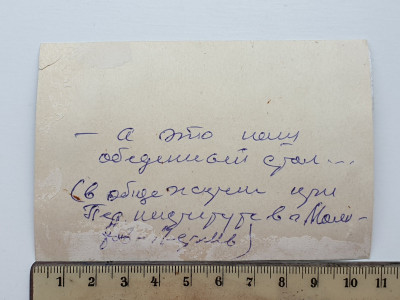 — а это наш
обеденный стол...
(в общежитии при
Пед. институте в г. Моло-
1 2 3 4 5 6 7 8 9 10 11